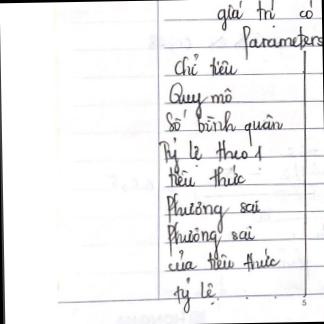 giá trị có
Parameters
chỉ tiêu
Quy mô
Số bình quân
Tỷ lệ theo 1
tiêu thức
Phương sai
Phương sai
của tiêu thức
tỷ lệ
5